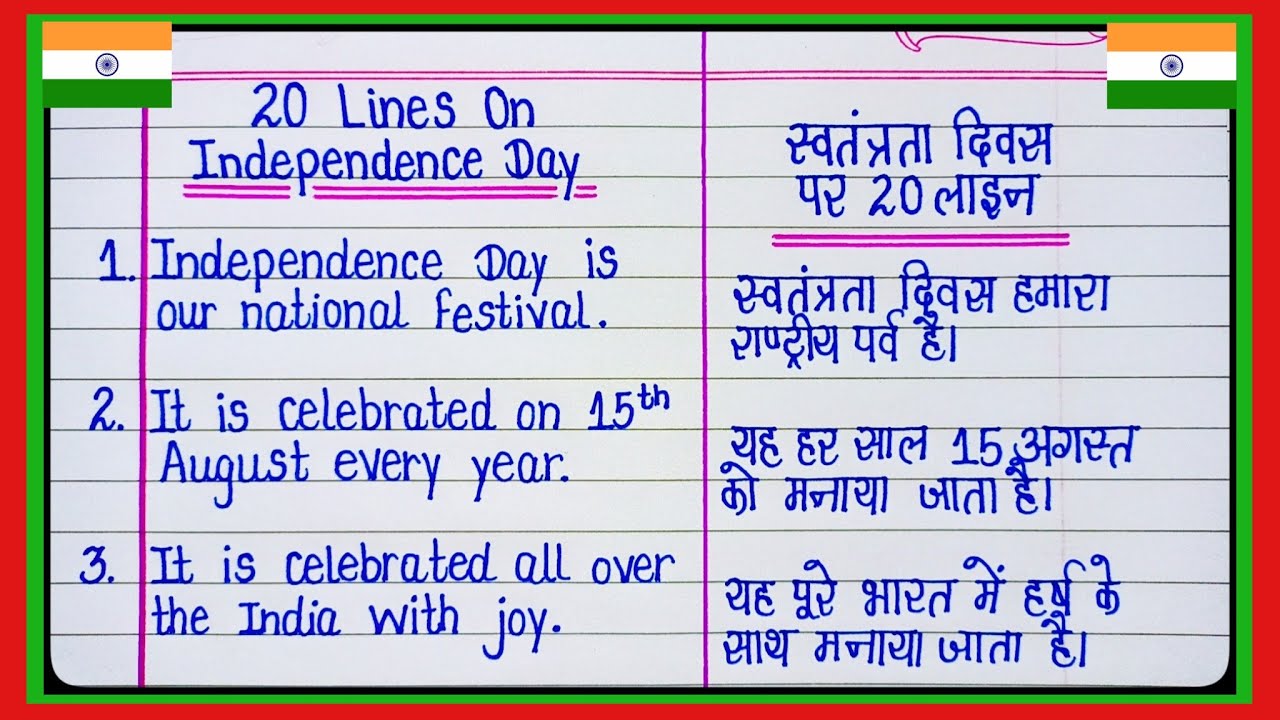 20 Lines On
Independence Day
1. Independence Day is
our national festival.
2. It is celebrated on 15th
August every year.
3. It is celebrated all over
the India with joy.
स्वतंत्रता दिवस
पर 20 लाइन
स्वतंत्रता दिवस हमारा
राष्ट्रीय पर्व है।
यह हर साल 15 अगस्त
को मनाया जाता है।
यह पूरे भारत में हर्ष के
साथ मनाया जाता है।